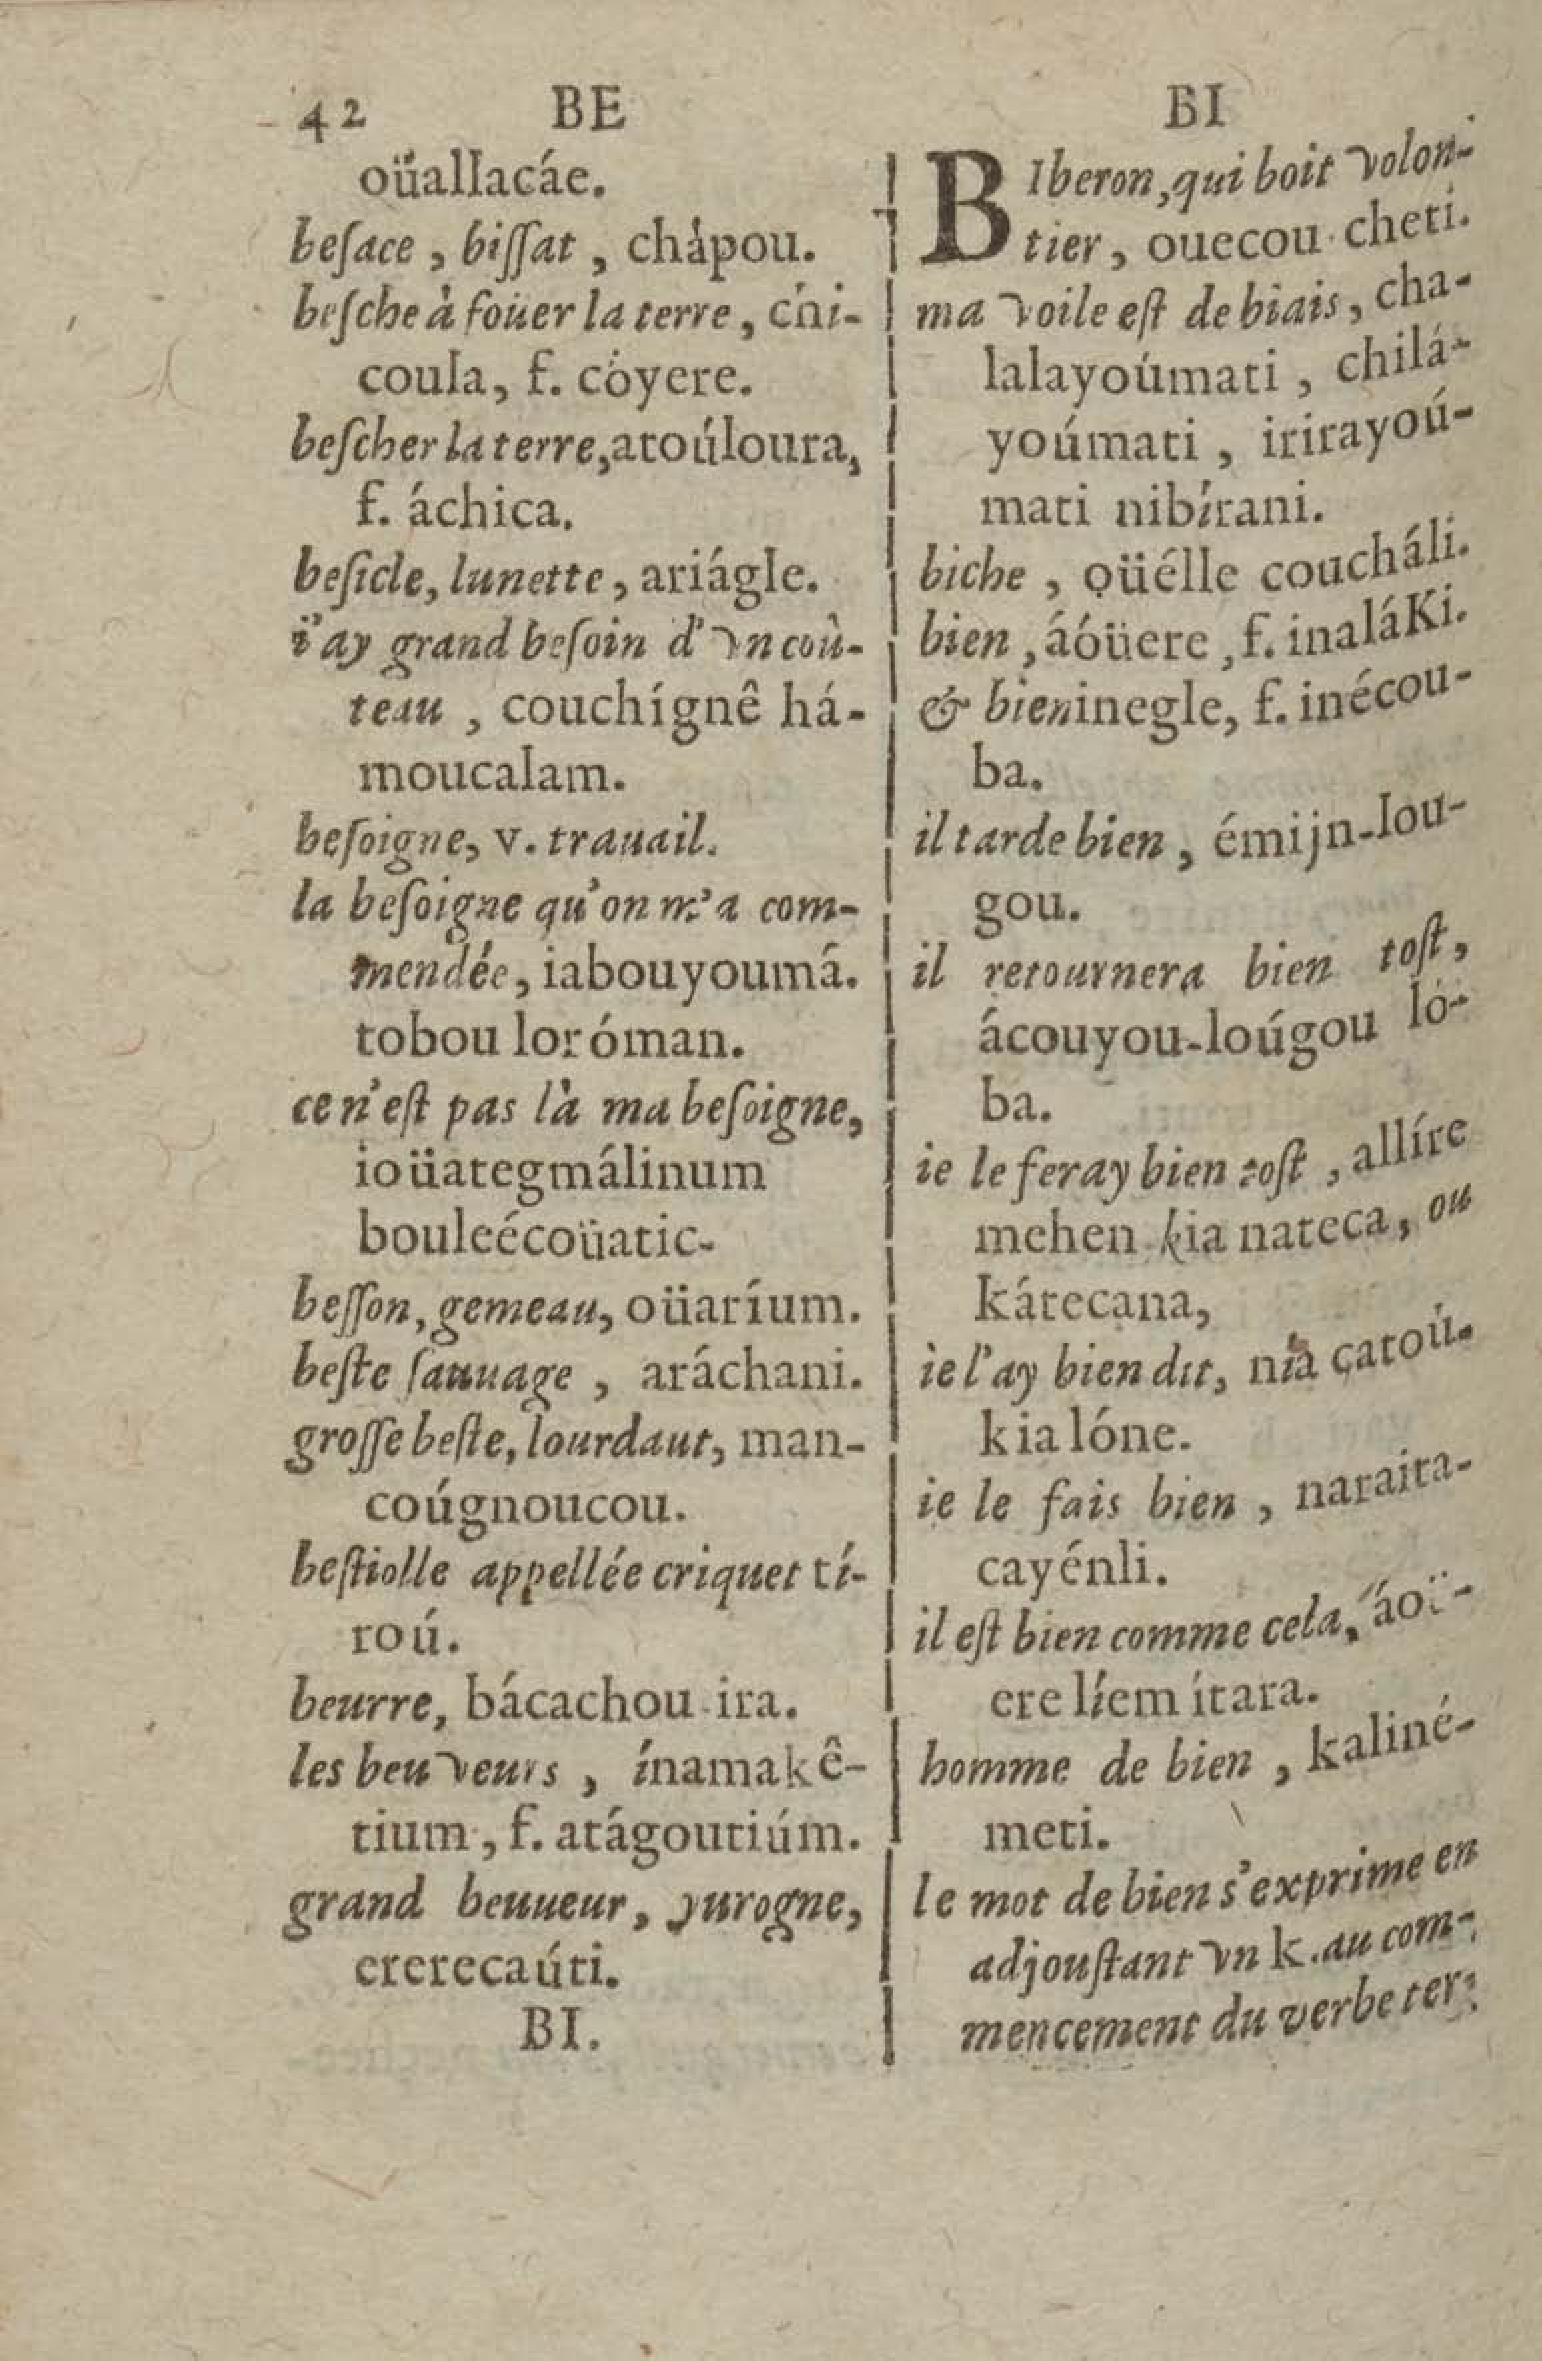 42 BE
oüallacáe.
beſace, biſſat, chápou.
beſche à foüer la terre, chi-
coula, f. còyere.
beſcher la terre, atoúloura,
f. áchica.
beſicle, lunette, ariágle.
i'ay grand beſoin d'vn coû-
teau, couchígnê há-
moucalam.
beſoigne, v. trauail.
la beſoigne qu'on m'a com-
mendée, iabouyoumá.
tobou loróman.
ce n'eſt pas là ma beſoigne,
ioüategmálinum
bouleécoüatic-
beſſon, gemeau, oüaríum.
beſte ſauuage, aráchani.
groſſe beſte, lourdaut, man-
coúgnoucou.
beſtiolle appellée criquet tí-
roú.
beurre, bácachou ira.
les beuveurs, ínamakê-
tium, f. atágoutiúm.
grand beuueur, yurogne,
ererecaúti.
BI.
BI
BIberon, qui boit volon-
tier, ouecou cheti.
ma voile eſt de biais, cha-
lalayoúmati, chilá-
yoúmati, irirayoú-
mati nibírani.
biche, oüélle coucháli.
bien, áóüere, f. inaláKi.
& bien inegle, f. inécou-
ba.
il tarde bien, émijn-lou-
gou.
il retournera bien toſt,
ácouyou-loúgou ló-
ba.
ie le feray bien toſt, allíre
mehen kia nateca, ou
kátecana,
ie l'ay bien dit, nia çatoú-
kia lóne.
ie le fais bien, naraita-
cayénli.
il eſt bien comme cela, áoü-
ere líem ítara.
homme de bien, kaliné-
meti.
le mot de bien s'exprime en
adjouſtant vn k. au com-
mencement du verbe ter-